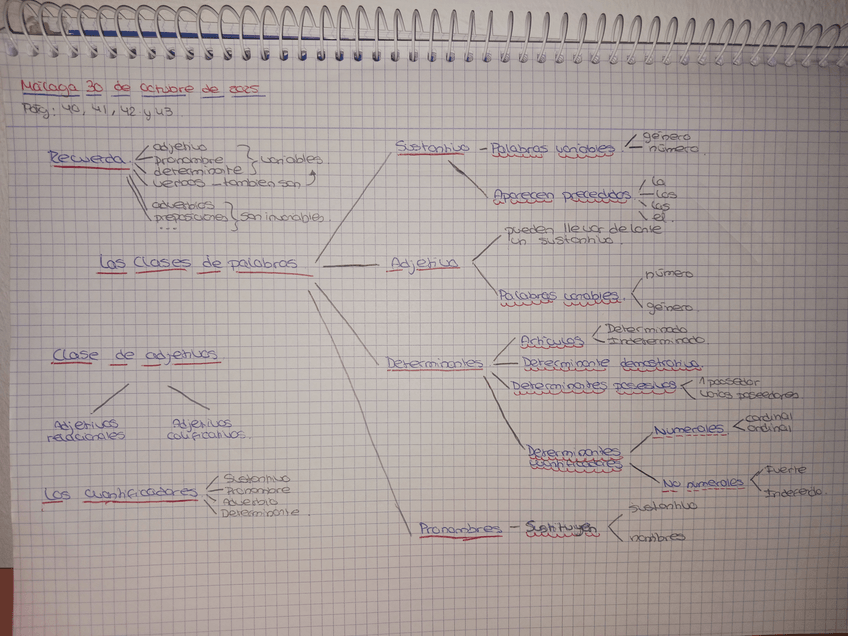 Málaga 30 de octubre de 2025
Pág: 40, 41, 42 y 43.
Recuerda
adjetivo
pronombre
determinante
variables
verbos - tambien son
adverbios
preposiciones
...
son invariables.
Las clases de palabras
Sustantivo - Palabras variables
género
número
Aparecen precedidos
la
los
las
el.
Adjetivo
pueden llevar delante
un sustantivo.
Palabras variables.
número
género.
Determinantes
Artículos
Determinado
Indeterminado
Determinante demostrativo
Determinantes posesivos
1 poseedor
varios poseedores
Determinantes
cuantificadores
Numerales
cardinal
ordinal
No numerales
fuerte
Pronombres - Sustituyen
sustantivo
nombres
Clase de adjetivos
Adjetivos
relacionales
Adjetivos
calificativos.
Los cuantificadores
Sustantivo
Pronombre
Adverbio
Determinante.